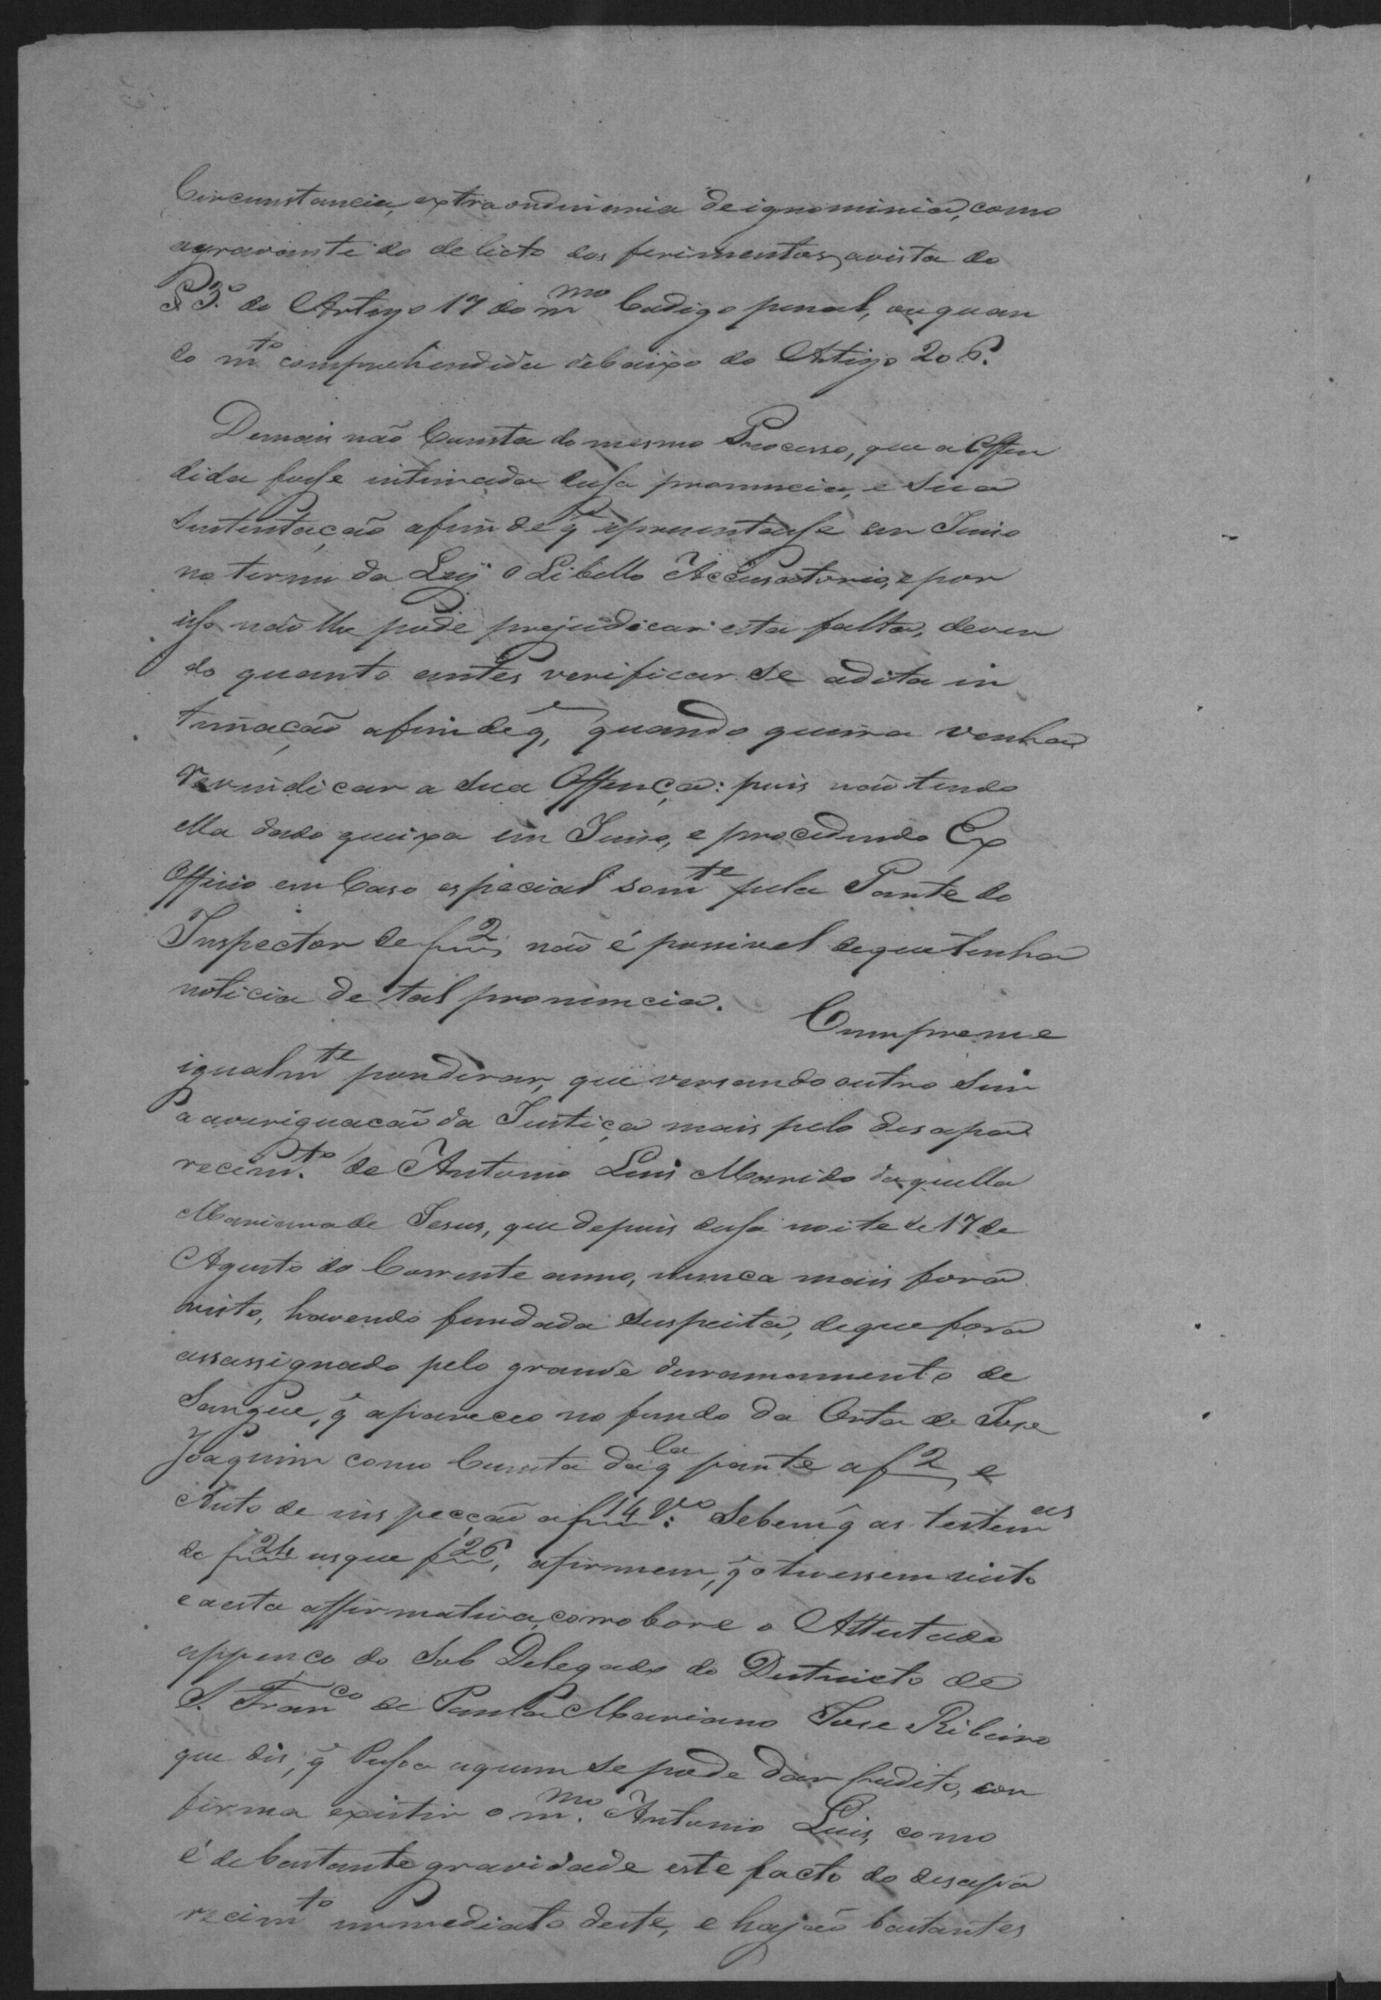 Circunstancia, extraordinaria de ignominia, como
agravante do delicto dos ferimentos, avista do
§ 3.º do Artigo 17 do m.mo Codigo penal, ou quan
do m.to comprehendida debaixo do Artigo 206.
Demais não Consta do mesmo Processo, que a Offen
dida fosse intimada dessa pronuncia, e sua
sustentação afim de q' apresentasse em Juiso
no termo da Ley o Libello Accusatorio, e por
isso não lhe pode prejudicar esta falta, deven
do quanto antes verificar se a dita in
timação afim de q', quando queira venha
revindicar a sua Offença: pois não tendo
ella dado queixa em Juiso, e procedendo Ex
Officio em Caso especial som.te pela Parte do
Inspector de f 2, não é possivel de que tenha
noticia de tal pronuncia. Cumpre me
igualm.te ponderar, que versando outro sim
a averiguação da Justiça mais pelo desapa
recim.to de Antonio Luis Marido daquella
Marianna de Jesus, que depois dessa noite de 17 de
Agosto do Corrente anno, nunca mais fora
visto, havendo fundada suspeita, de que fora
assassignado pelo grande derramamento de
Sangue, q' apareceo no fundo da Orta de Jose
Joaquim como Consta daq.la parte a f 2, e
Auto de inspecção a f 14 v.o: Sebem q' as testem.as
de f 24 usque f 26, afirmem, q' o tivessem visto
e a esta affirmativa, corrobore o Attestado
appenço do Sub Delegado do Destricto de
S. Fran.co de Paula Mariano Jose Ribeiro
que dis, q' Pessoa aquem se pode dar Credito, con
firma existir o m.mo Antonio Luis, como
é de bastante gravidade este facto do desapa
recim.to immediato deste, e hajão bastantes